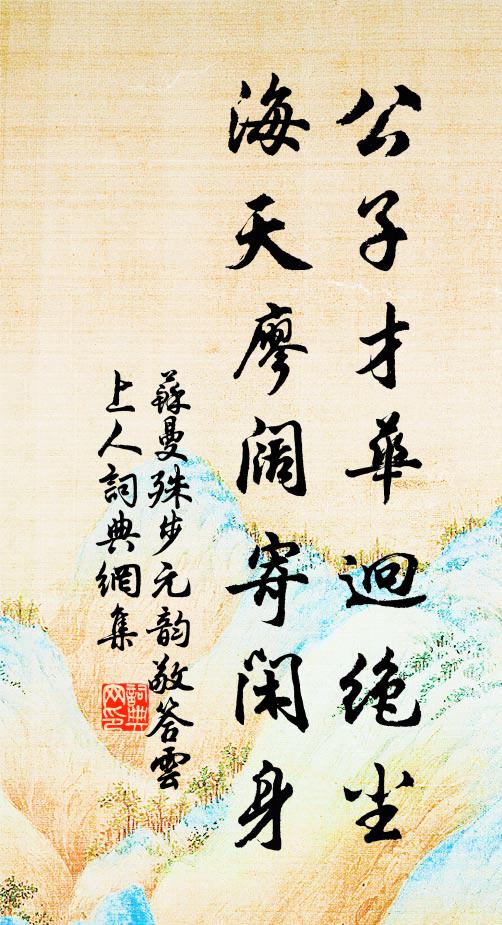 公子才華迥絶尘
海天廖阔寄闲身
蘇曼殊步元韵敬答雲
上人詞典網集
詞典网印